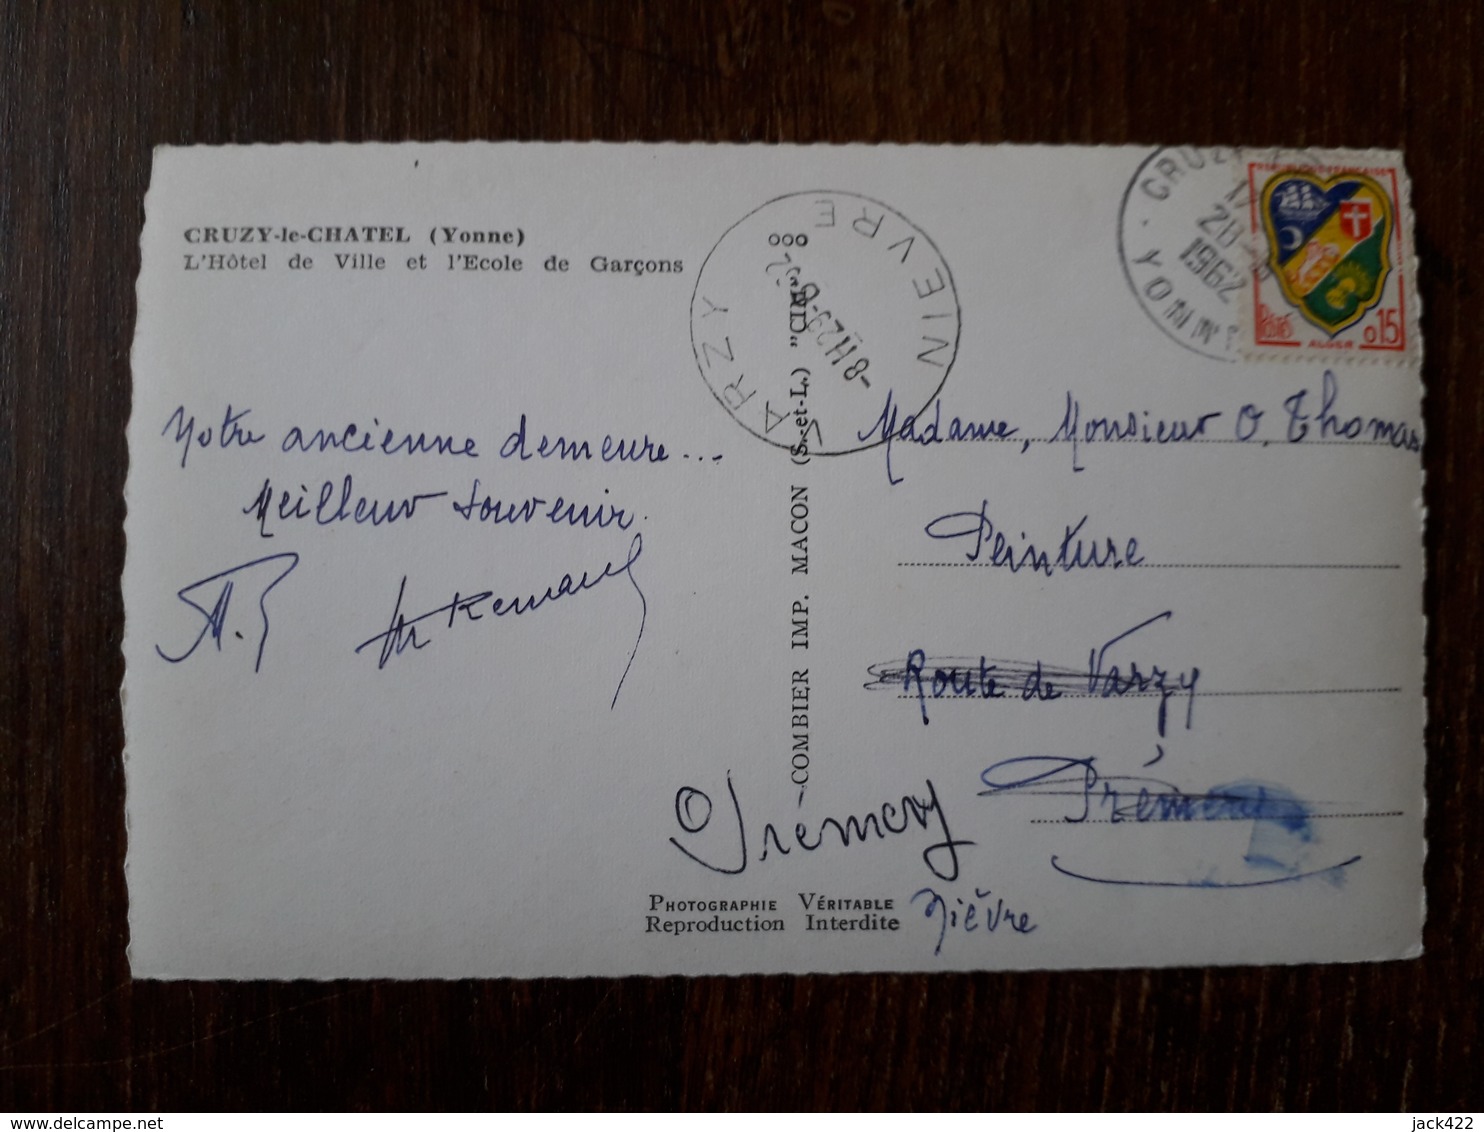 CRUZY-le-CHATEL (Yonne)
L'Hôtel de Ville et l'Ecole de Garçons
Notre ancienne demeure...
Meilleur souvenir.
VARZY
NIEVRE
8H 29-8
COMBIER IMP. MACON (S.-et-L.) "CIM"
CRUZY
28
1962
YONNE
REPUBLIQUE FRANÇAISE
Postes
0,15
ALGER
Madame, Monsieur O. Thomas
Peinture
Route de Varzy
Prémery
Prémery
Nièvre
PHOTOGRAPHIE VÉRITABLE
Reproduction Interdite
jack422